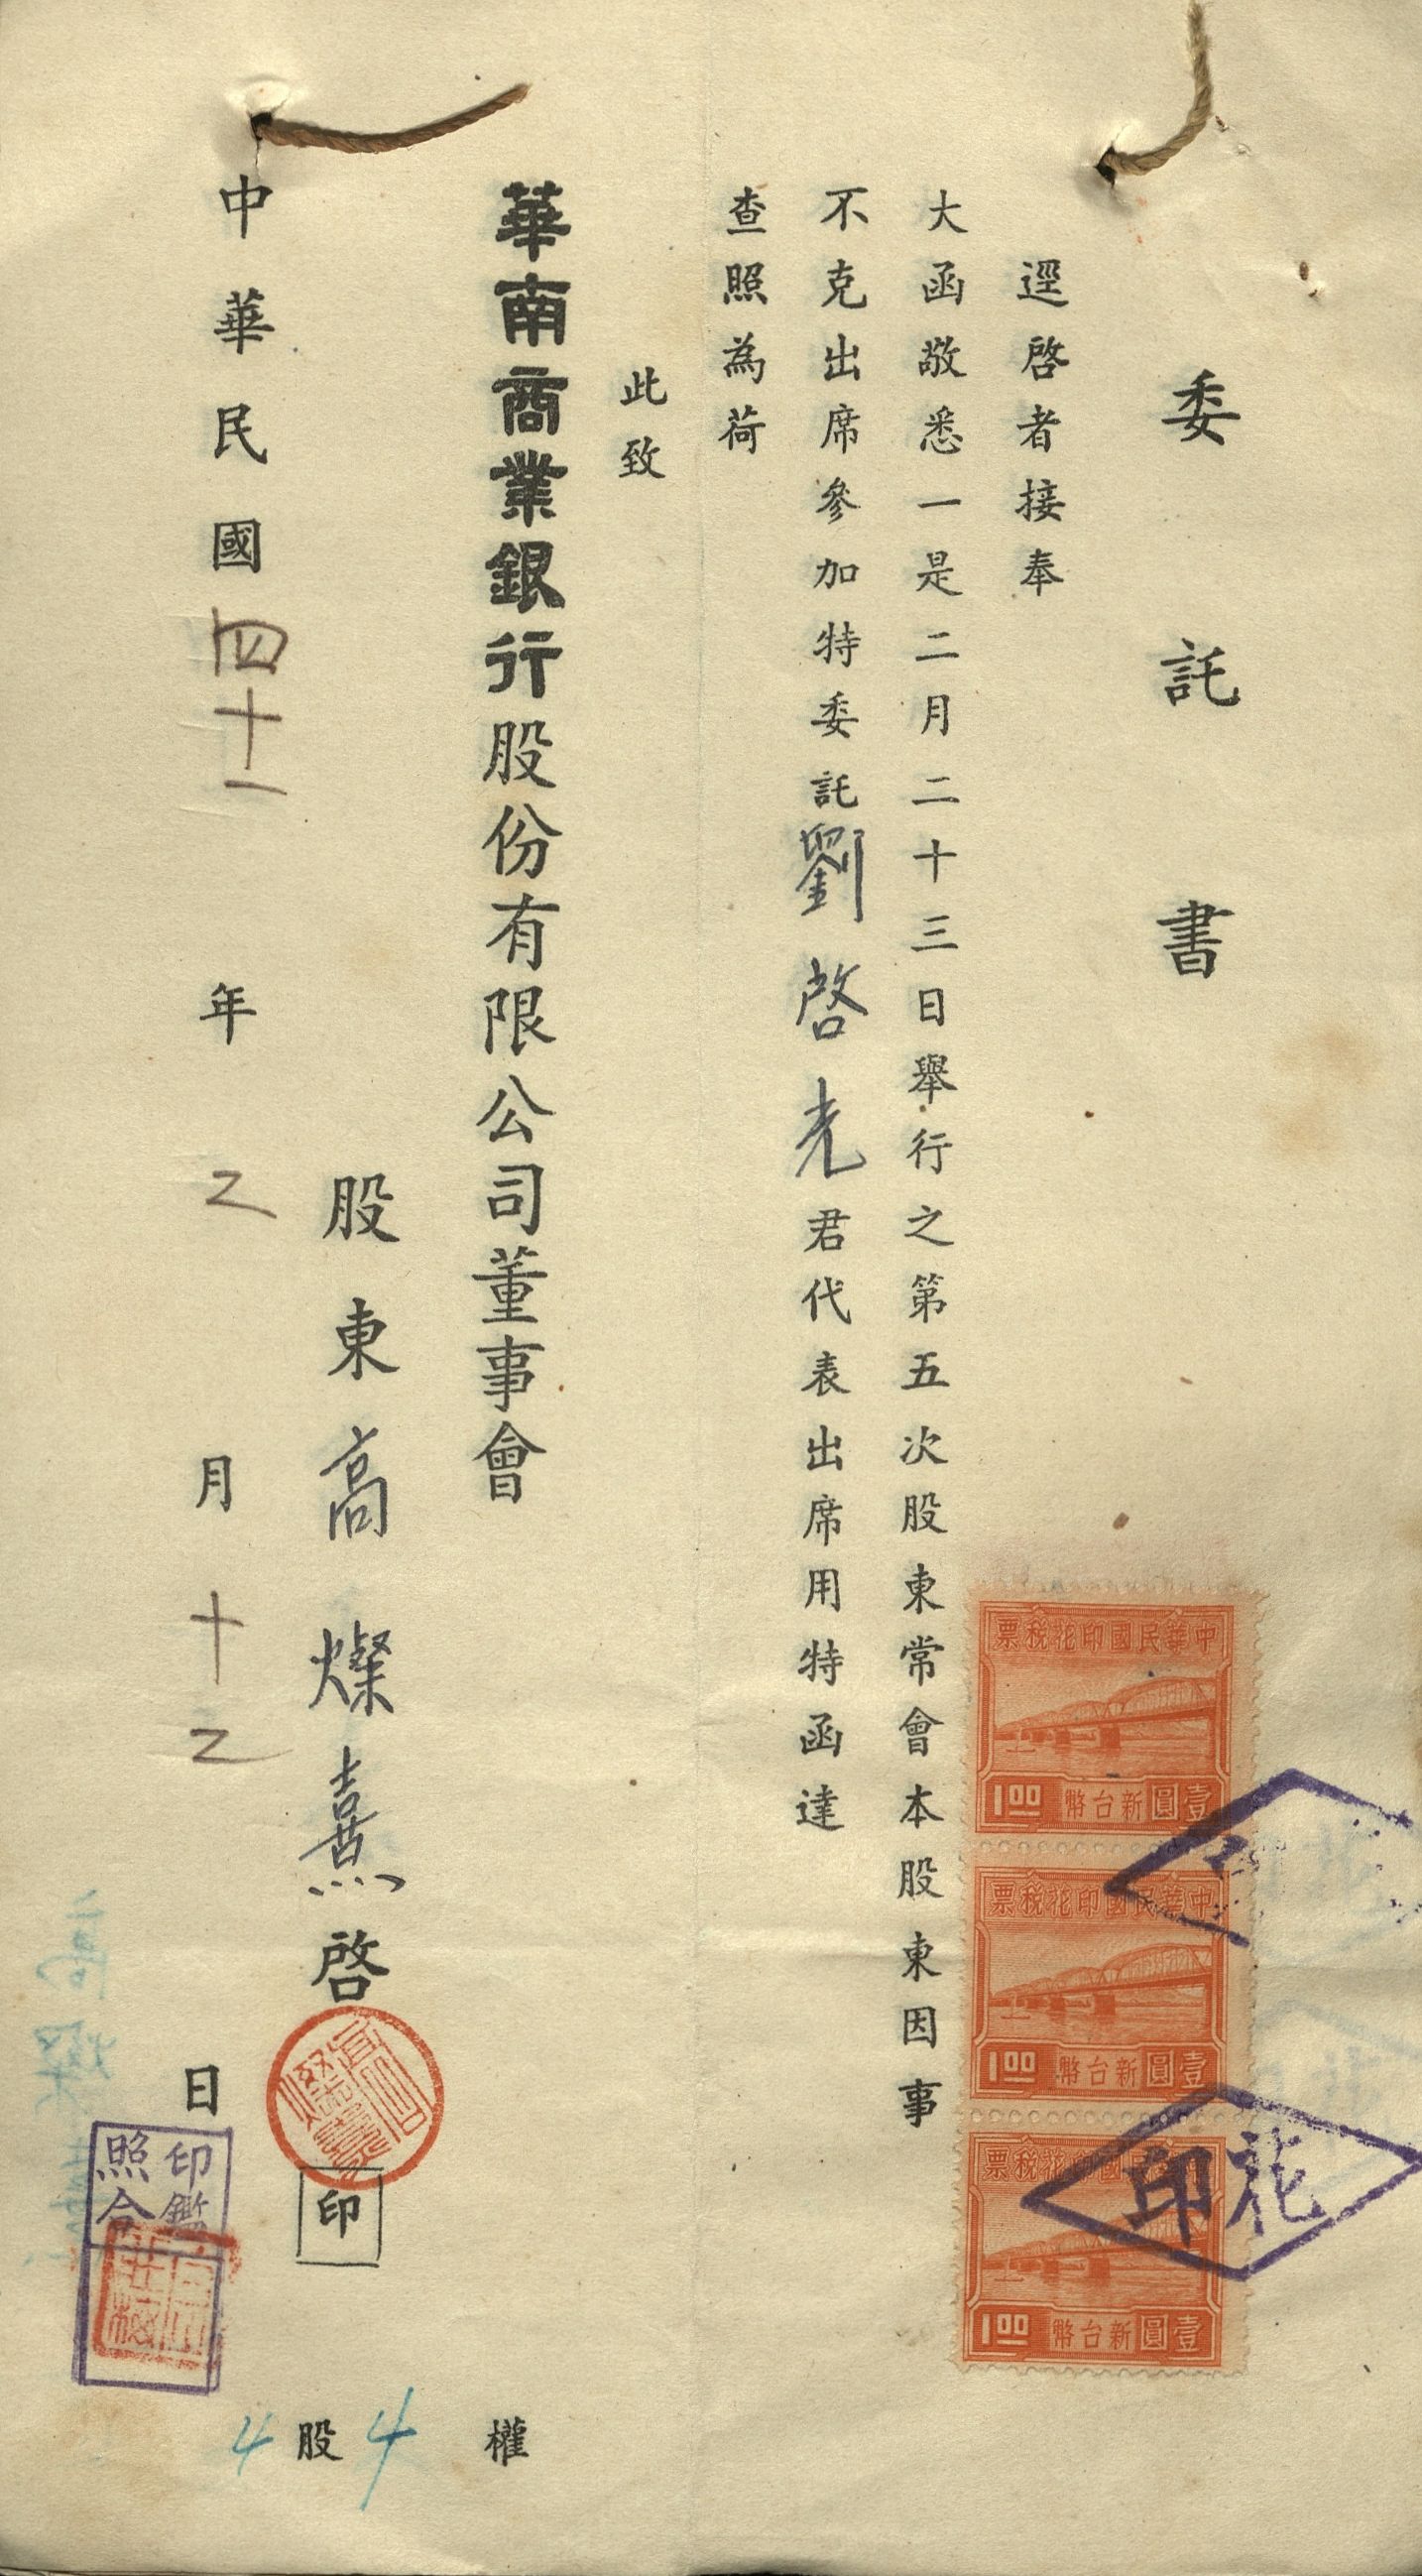 委託書
逕啓者接奉
大函敬悉一是二月二十三日舉行之第五次股東常會本股東因事
不克出席參加特委託劉啓光君代表出席用特函達
查照為荷
此致
華南商業銀行股份有限公司董事會
股東高燦熹啓
印
中華民國四十一年二月十二日
印鑑
照合
4股4權
中華民國印花稅票
1.00 新台幣壹圓
中華民國印花稅票
1.00 新台幣壹圓
中華民國印花稅票
1.00 新台幣壹圓
花印